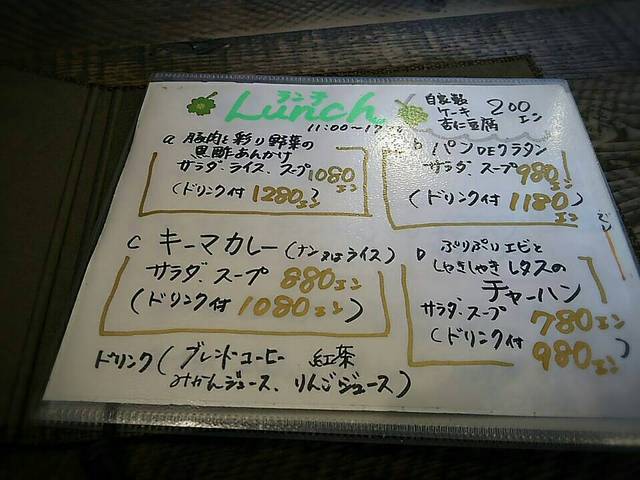 ランチ
Lunch
11:00~17
自家製
ケーキ
杏仁豆腐
200
エン
a 豚肉と彩り野菜の
黒酢あんかけ
サラダ、ライス、スープ 1080
エン
(ドリンク付 1280エン)
b パンDEグラタン
サラダ、スープ 980エン
(ドリンク付 1180エン)
C キーマカレー(ナン又はライス)
サラダ、スープ 880エン
(ドリンク付 1080エン)
D ぷりぷりエビと
しゃきしゃきレタスの
チャーハン
サラダ、スープ 780エン
(ドリンク付 980エン)
ドリンク(ブレンドコーヒー 紅茶
みかんジュース、りんごジュース)